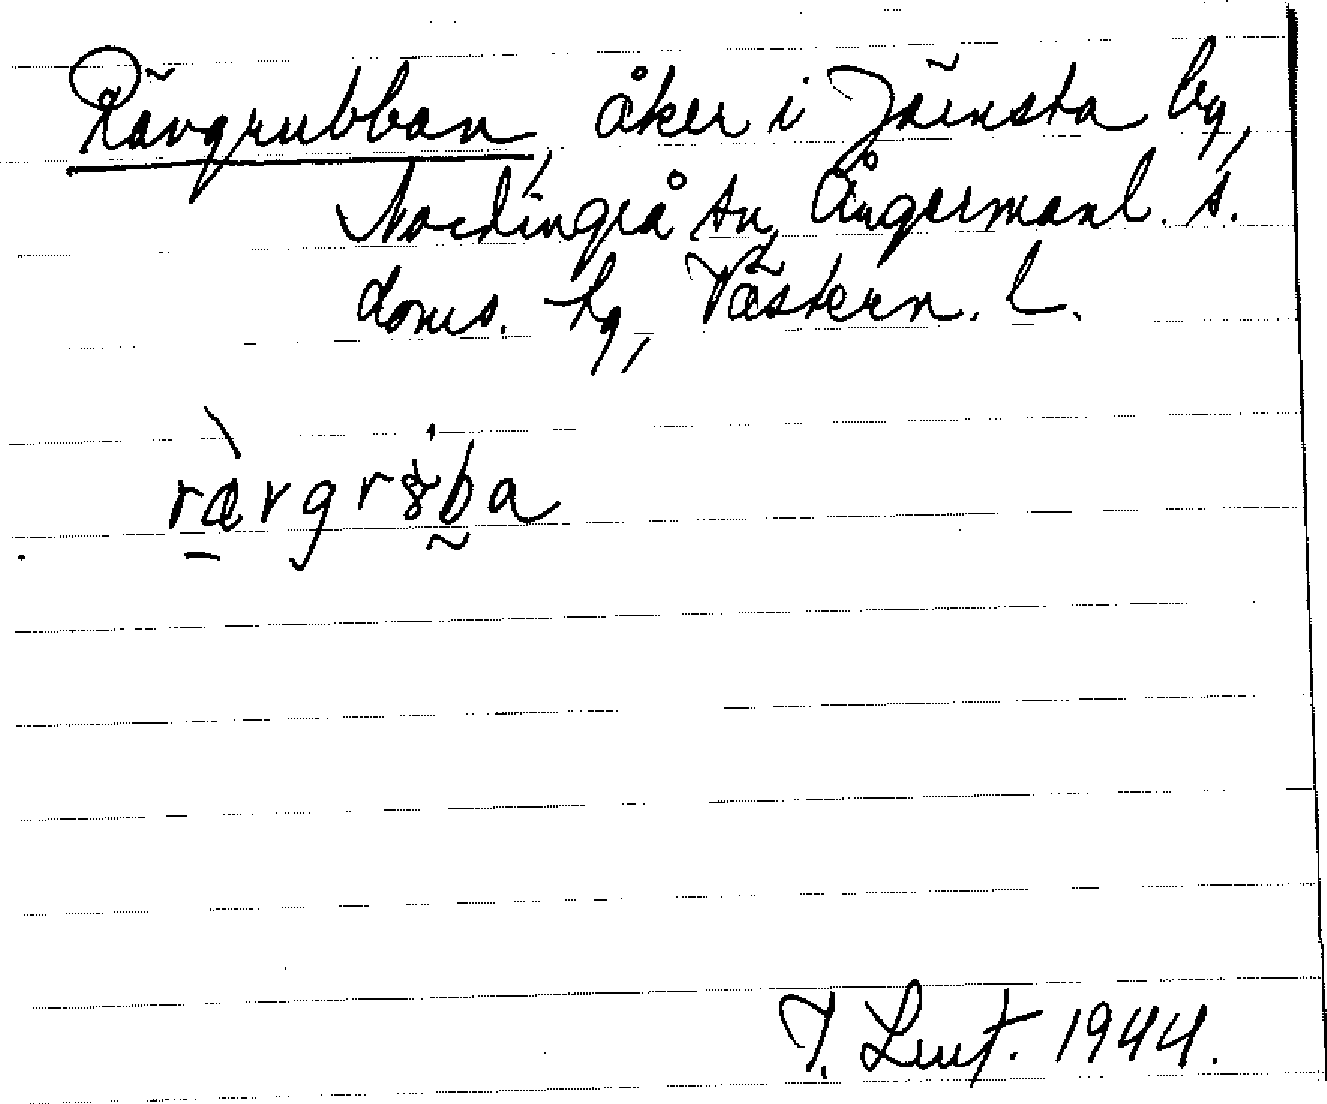 Rävgrubban, åker i Järnsta by,
Nordingrå sn, Ångermanl. s.
doms. hg, Västern. l.
rævgrȣba
1944.